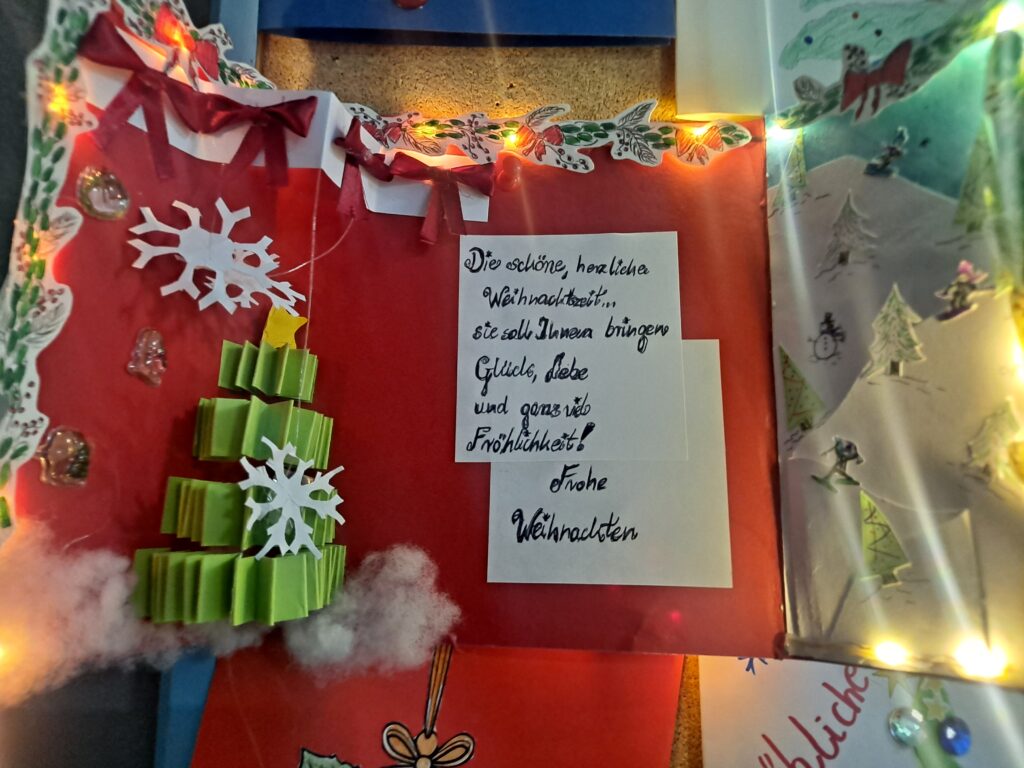 Die schöne, herzliche
Weihnachtszeit...
sie soll Ihnen bringen
Glück, Liebe
und ganz viel
Fröhlichkeit!
Frohe
Weihnachten